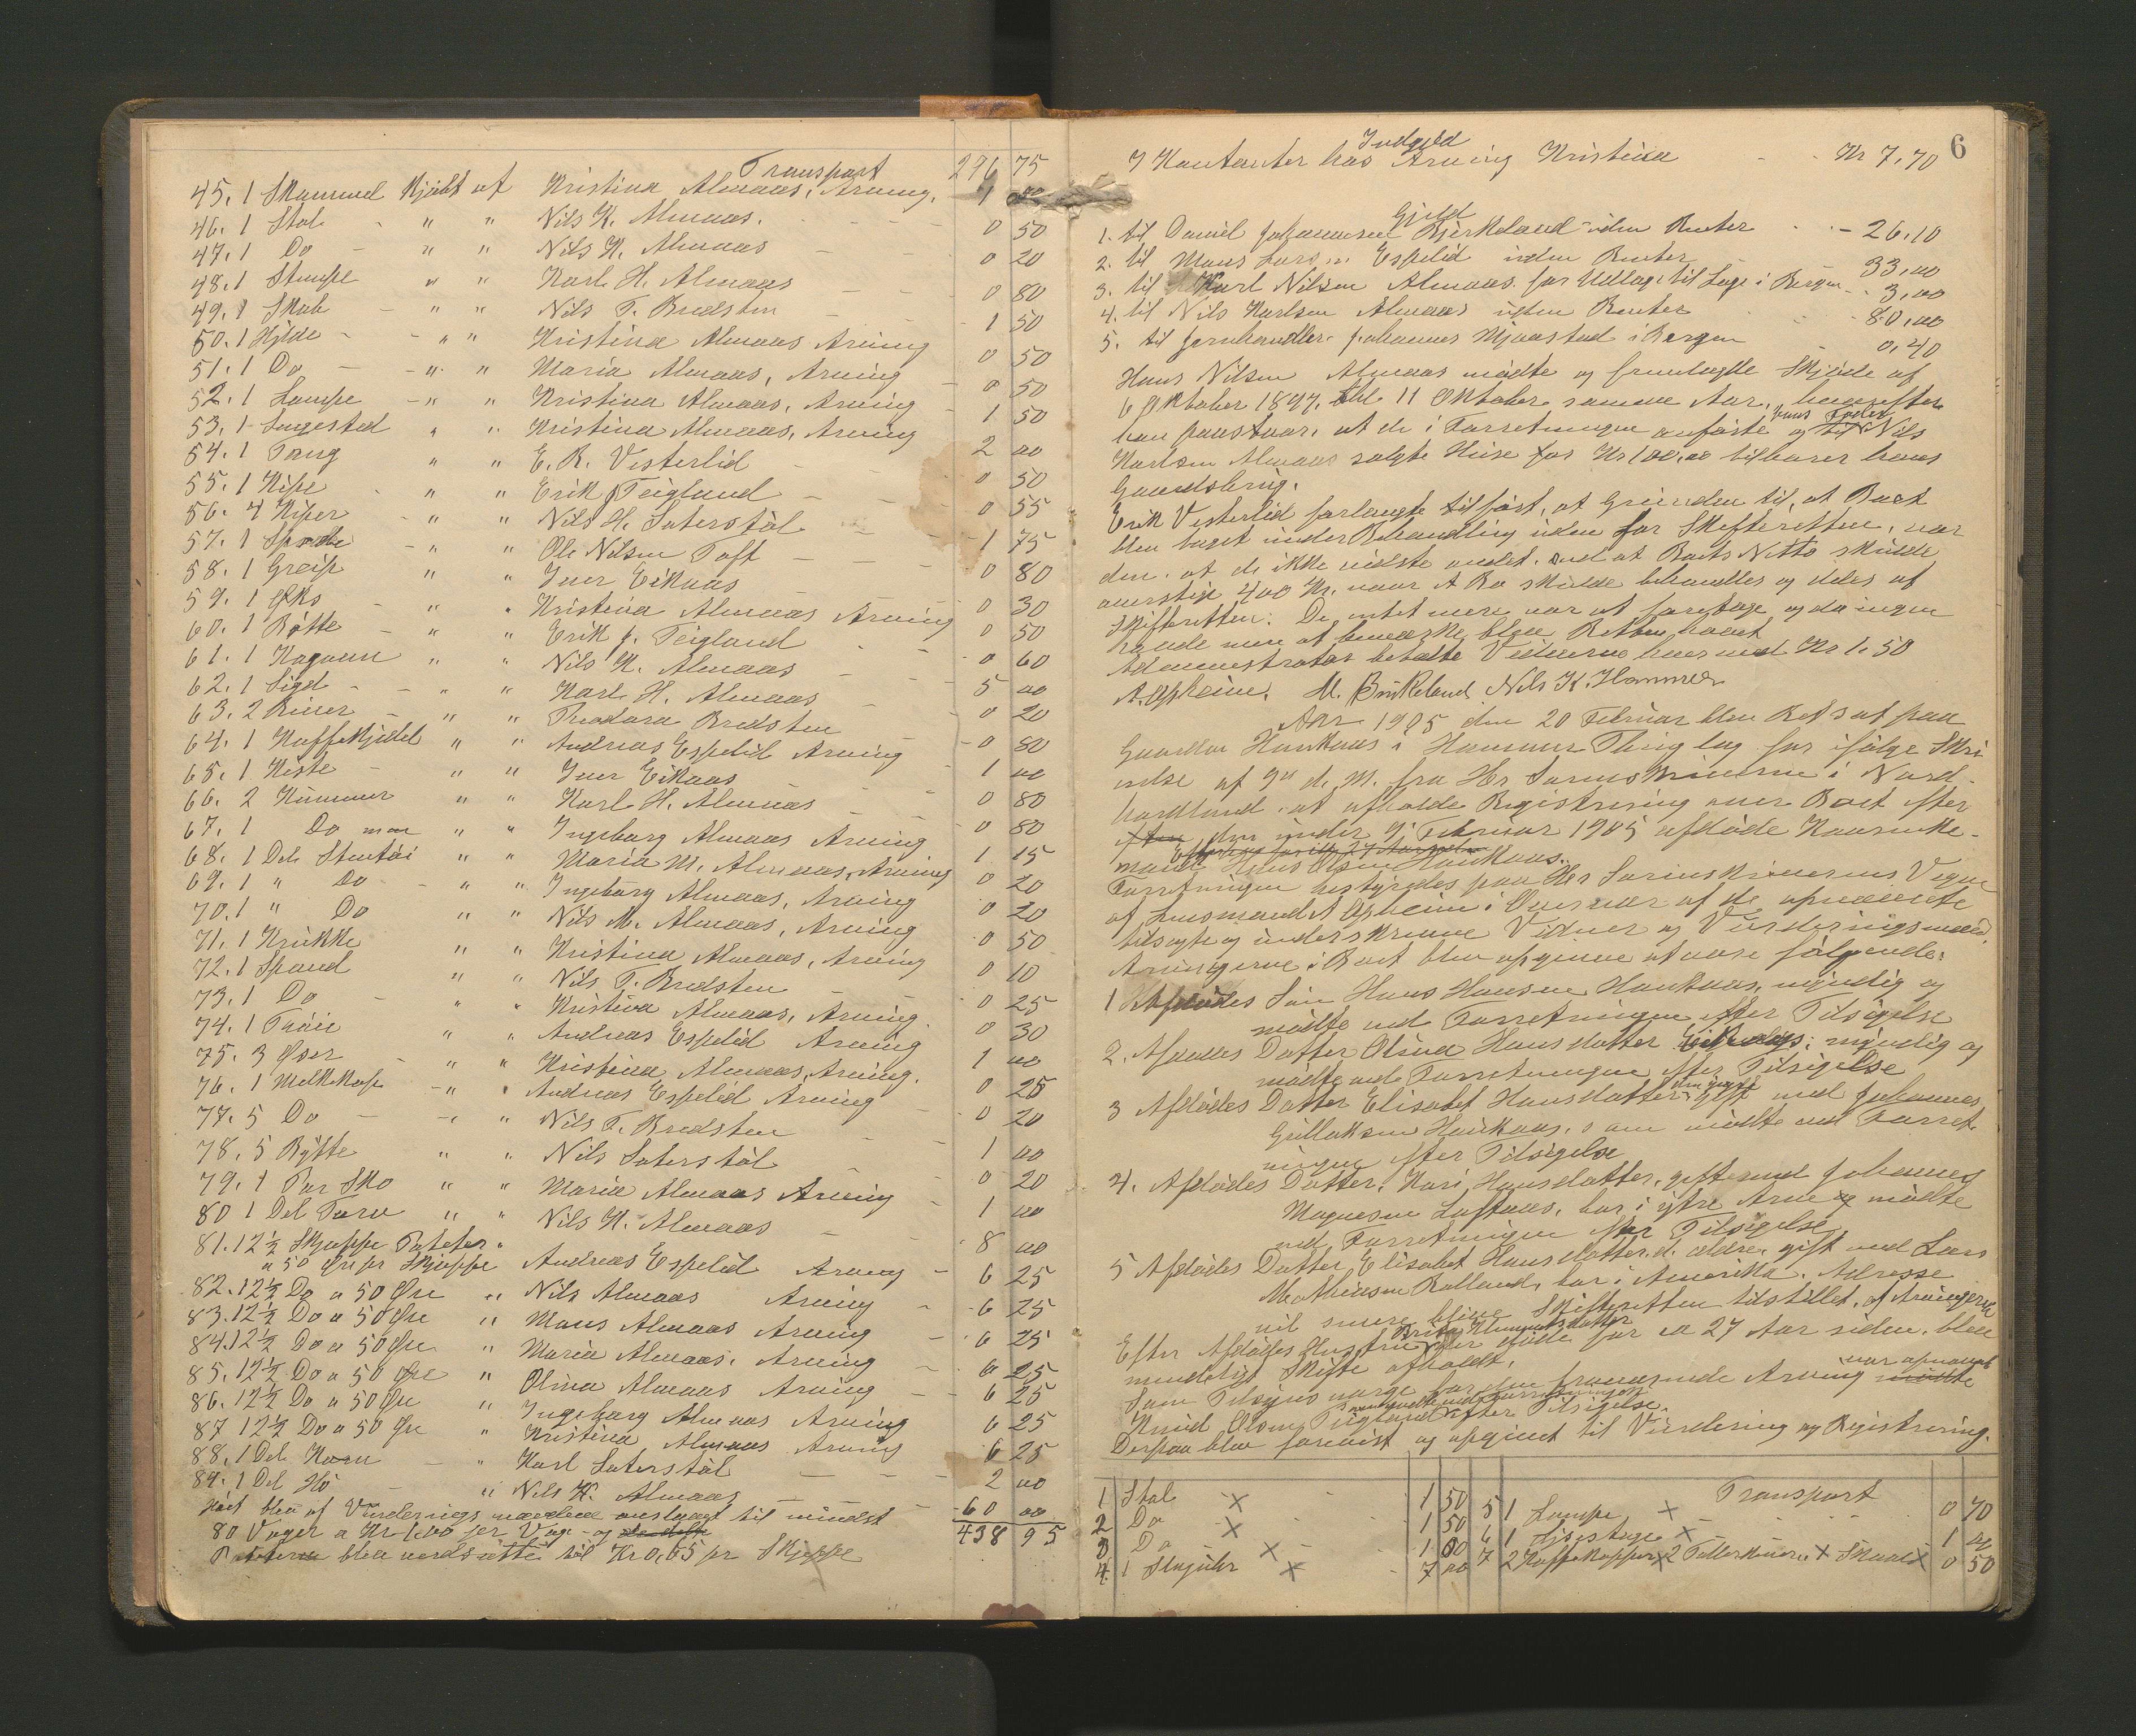 Transport 296 75
45. 1 Skammel Kjøbt af Kristina Almaas, Arving. 1 00
46. 1 Stol " " Nils K. Almaas. 0 50
47. 1 Do " " Nils K. Almaas 0 20
48. 1 Stampe " " Karl H. Almaas 0 80
49. 1 Skab " " Nils T. Bredsten 1 50
50. 1 Hylde " " Kristina Almaas Arving 0 50
51. 1 Do " " Maria Almaas, Arving 0 50
52. 1 Lampe " " Kristina Almaas, Arving 1 50
53. 1 Sengested " " Kristina Almaas, Arving 2 00
54. 1 Tang " " E. R. Vesterlid 0 50
55. 1 Kipe " " Erik J Teigland 0 55
56. 4 Kiper " " Nils H. Säterstöl 1 75
57. 1 Spade " " Ole Nilsen Toft 0 80
58. 1 Greip " " Iver Eikaas 0 30
59. 1 Øks " " Kristina Almaas Arving 0 50
60. 1 Bøtte " " Erik J. Teigland 0 60
61. 1 Kagovn " " Nils K. Almaas 5 00
62. 1 Sigd " " Karl H. Almaas 0 20
63. 2 River " " Theodora Bredsten 0 80
64. 1 Kaffekjedel " " Andreas Espelid Arving 1 00
65. 1 Kiste " " Iver Eikaas 0 80
66. 2 Kummer " " Karl H. Almaas 0 80
67. 1 Do " " Ingeborg Almaas Arving 1 15
68. 1 Del Stentøi " " Maria M. Almaas, Arving 0 20
69. 1 " Do " " Ingeborg Almaas, Arving 0 20
70. 1 " Do " " Nils M. Almaas, Arving 0 50
71. 1 Krukke " " Kristina Almaas, Arving 0 10
72. 1 Spand " " Nils T. Bredsten 0 25
73. 1 Do " " Kristina Almaas, Arving. 0 30
74. 1 " " Andreas Espelid Arving 1 00
75. 3 Øser " " Kristina Almaas, Arving. 0 25
76. 1 Melkekop " " Andreas Espelid Arving 0 20
77. 5 Do " " Nils T. Bredsten 1 00
78. 5 Bøtte " " Nils Säterstöl 0 20
79. 1 Par Sko " " Maria Almaas Arving 1 00
80 1 Del Torv " " Nils K. Almaas 8 00
81. 12 ½ Skjeppe Poteter "
a 50 Øre pr Skjeppe Andreas Espelid Arving 6 25
82. 12 ½ Do a 50 Øre " Nils Almaas Arving 6 25
83. 12 ½ Do a 50 Øre " Mons Almaas Arving 6 25
84. 12 ½ Do a 50 Øre " Maria Almaas, Arving 6 25
85. 12 ½ Do a 50 Øre " Olina Almaas Arving 6 25
86. 12 ½ Do a 50 Øre " Ingeborg Almaas Arving 6 25
87 12 ½ Do a 50 Øre " Kristina Almaas Arving 6 25
88. 1 Del Korn " Karl Säterstöl 2 00
89. 1 Del Hö " Nils K. Almaas 60 00
Höet blev af Vurderingsmændene anslaaet til mindst 438 95
80 Voger a Kr 1,00 pr Vog - og
Poteterne blev værdsatte til Kr 0,65 pr Skjeppe
6
Indgjeld
I Kontanter hos Arving Kristina Kr 7,70
Gjeld
1. til Daniel Johannesen Bjerkeland uden Renter 26,10
2. til Mons Larsen Espelid uden Renter 33,00
3. til Karl Nilsen Almaas for Udlæg til Læge i Bergen 3,00
4. til Nils Karlsen Almaas uden Renter 80,00
5. til Jernhandler Johannes Mjaastad i Bergen 0,40
Hans Nilsen Almaas mødte og fremlagde Skjøde af
6 Oktober 1897, 11 Oktober samme Aar, hvorefter
han paastaar, at de i Forretningen anførte og til hans Fader Nils
Karlsen Almaas solgte Huse for Kr 100,00 tilhører hans
Gaardsbrug.
Erik Vesterlid forlangte tilført, at Grunden til, at Boet
blev taget under Behandling uden for Skifteretten, var
den, at de ikke vidste andet, end at Boets Netto skulde
overstige 400 Kr, naar et Bo skulde behandles og deles af
Skifteretten. Da intet mere var at foretage og da ingen
havde mere at bemærke, blev Retten hævet
Administrator betalte Vidnerne hver med Kr 1.50
A. Opheim. M. Birkeland Nils K. Hammer
Aar 1905 den 20 Februar blev Ret sat paa
Gaarden Haukaas i Hammer Thinglag for ifølge Skri
velse af 9de d. M. fra Hr. Sorenskriveren i Nord-
hordland, at afholde Registrering over Boet efter
den under 9. Februar 1905 afdøde Kaarenke-
mand Hans Olsen Haukaas.
Forretningen bestyredes paa Hr Sorenskriverens Vegne
af Lensmand A Opheim i Overvær af de opnævnte
tilsagte og underskrevne Vidner og Vurderingsmænd.
Arvingerne i Boet blev opgivne at være følgende:
1 Afdødes Søn Hans Hansen Haukaas, myndig og
mødte ved Forretningen efter Tilsigelse
2. Afdødes Datter Olina Hansdatter, myndig og
mødte ved Forretningen efter Tilsigelse
3 Afdødes Datter Elisabet Hansdatter den yngre gift med Johannes
Gullaksen Haukaas, som mødte ved Forret-
ningen efter Tilsigelse
4. Afdødes Datter, Kari Hansdatter, gift med Johannes
Magnesen Loftaas, bor i ytre Arne og mødte
ved Forretningen efter Tilsigelse
5 Afdødes Datter Elisabet Hansdatter d. ældre, gift med Lars
Mathiasen Rolland, bor i Amerika. Adresse
vil snart blive Skifteretten tilstillet, af Arvingerne
Efter Afdødes Hustru Brita, der døde for ca 27 Aar siden, blev
mindeligt Skifte afholdt.
Som Tilsynsværge for den fraværende Arving var opnævnt
Knud Olsen Teigland efter Tilsigelse.
Derpaa blev forevist og opgivet til Vurdering og Registrering.
1 Stol x 1 50
2 Do x 1 50
3 Do x 1 00
4. 1 Slagúhr x 7 00
Transport
5 1 Lampe x 0 70
6 1 Lysestage x 1 00
7 2 Kaffekopper x 2 Tallerkener x Skaal x 0 50